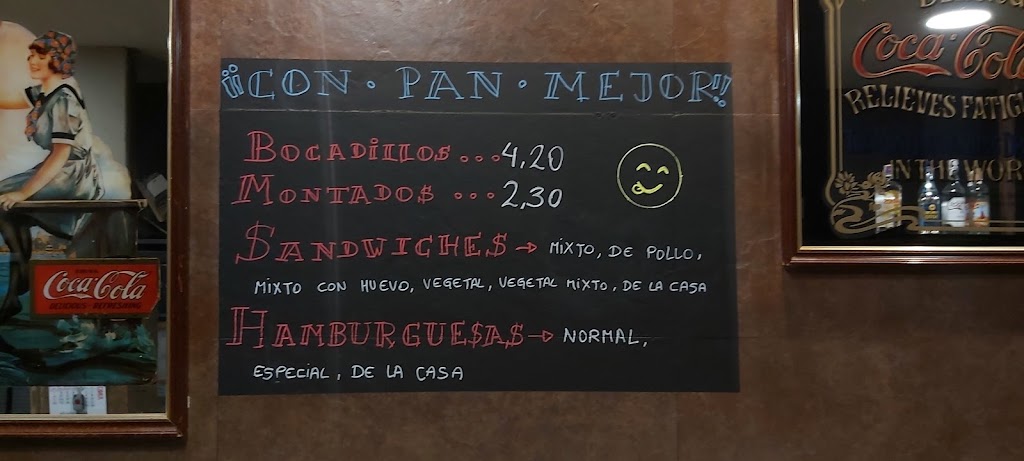 ¡¡CON · PAN · MEJOR!!
BOCADILLOS...4,20
MONTADOS ...2,30
SANDWICHES → MIXTO, DE POLLO,
MIXTO CON HUEVO, VEGETAL, VEGETAL MIXTO, DE LA CASA
HAMBURGUESAS → NORMAL,
ESPECIAL, DE LA CASA
Coca-Cola
DELICIOUS·REFRESHING
Coca-Cola
RELIEVES FATIG
IN THE WOR